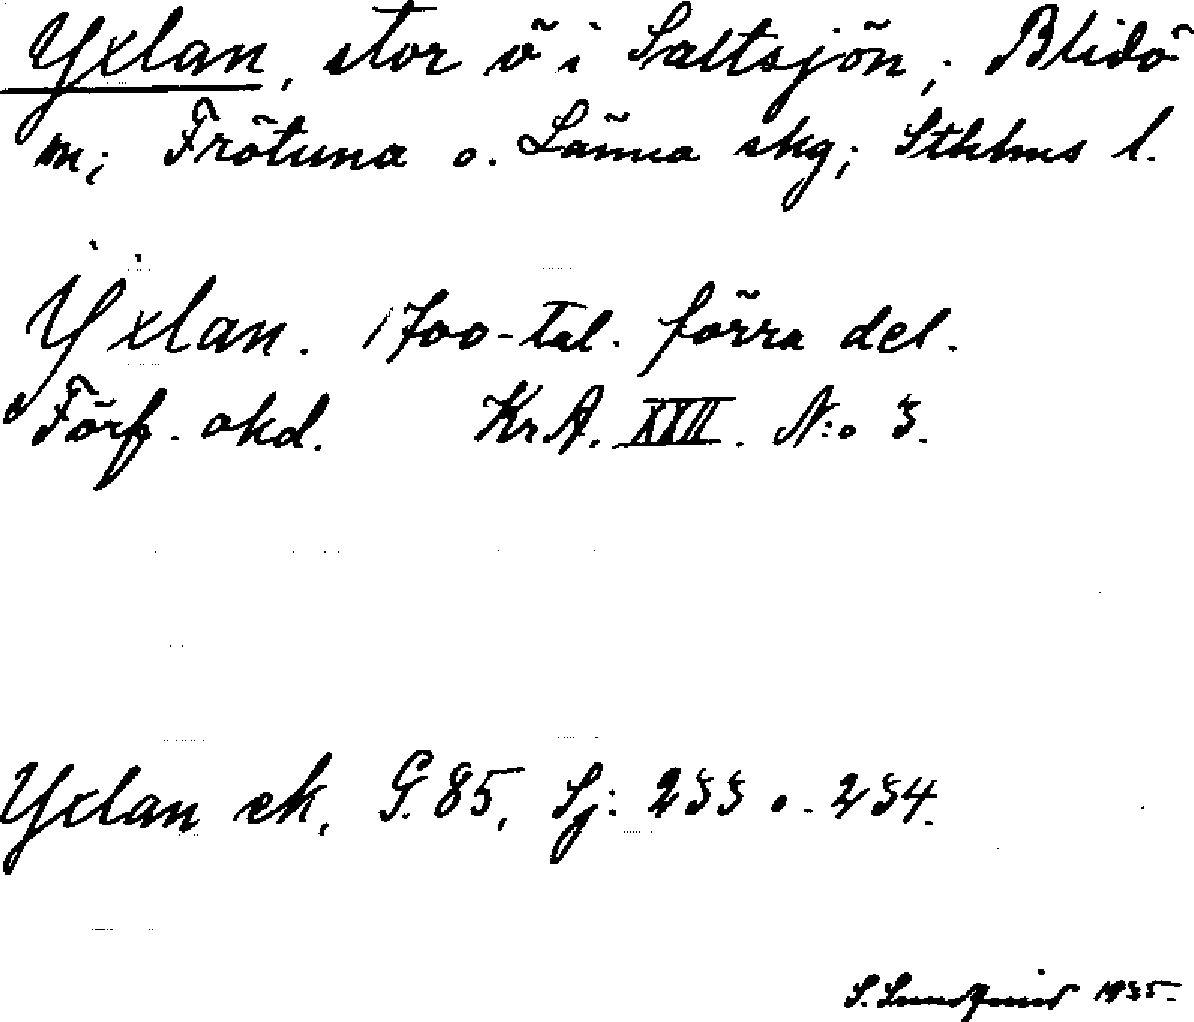 Yxlan, stor ö i Saltsjön; Blidö
m; Frötuna o. Länna skg; Sthlms l.
Yxlan. 1700-tal. förra del.
Förf. okd. KrA. XVII. N:o 3.
Yxlan ek. G. 85, Sj: 233 o. 234.
S. Lundqvist 1935.